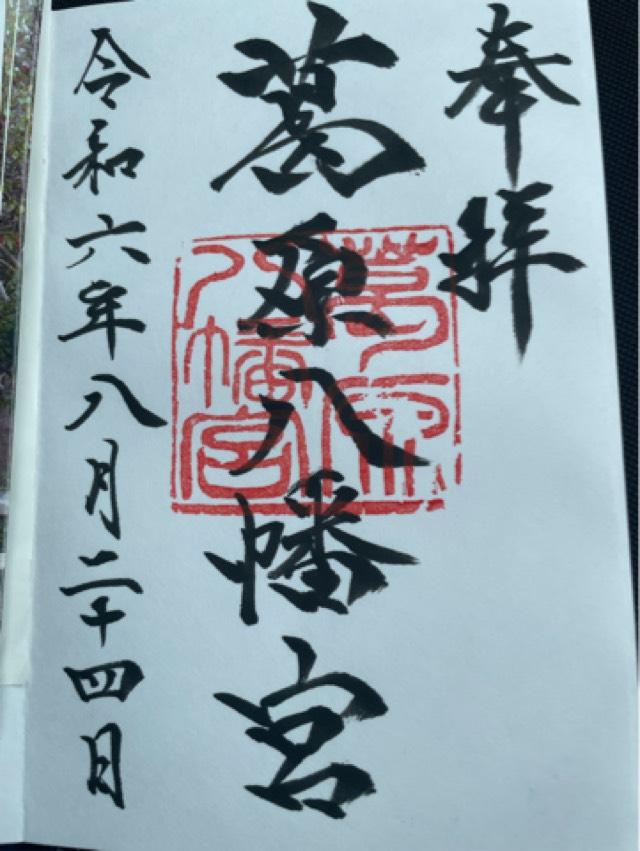 奉拝
葛原八幡宮
令和六年八月二十四日
葛原
八幡宮